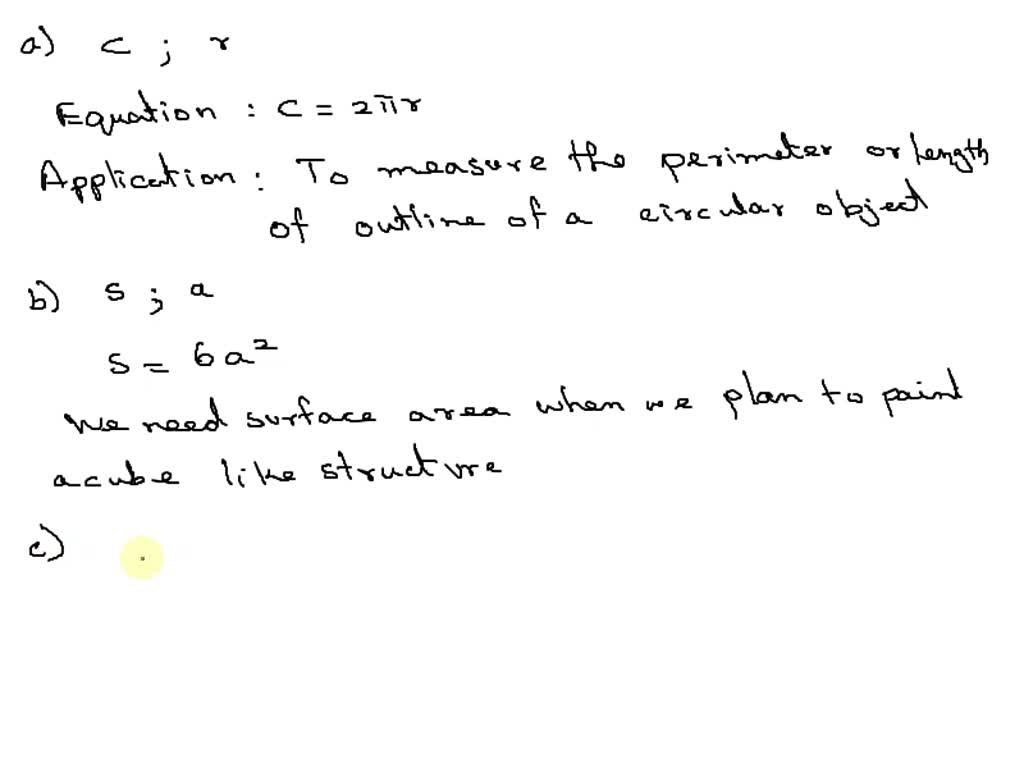 a) C ; r
Equation : C = 2πr
Application : To measure the perimeter or length
of outline of a circular object
b) S ; a
S = 6a²
We need surface area when we plan to paint
a cube like structure
c)